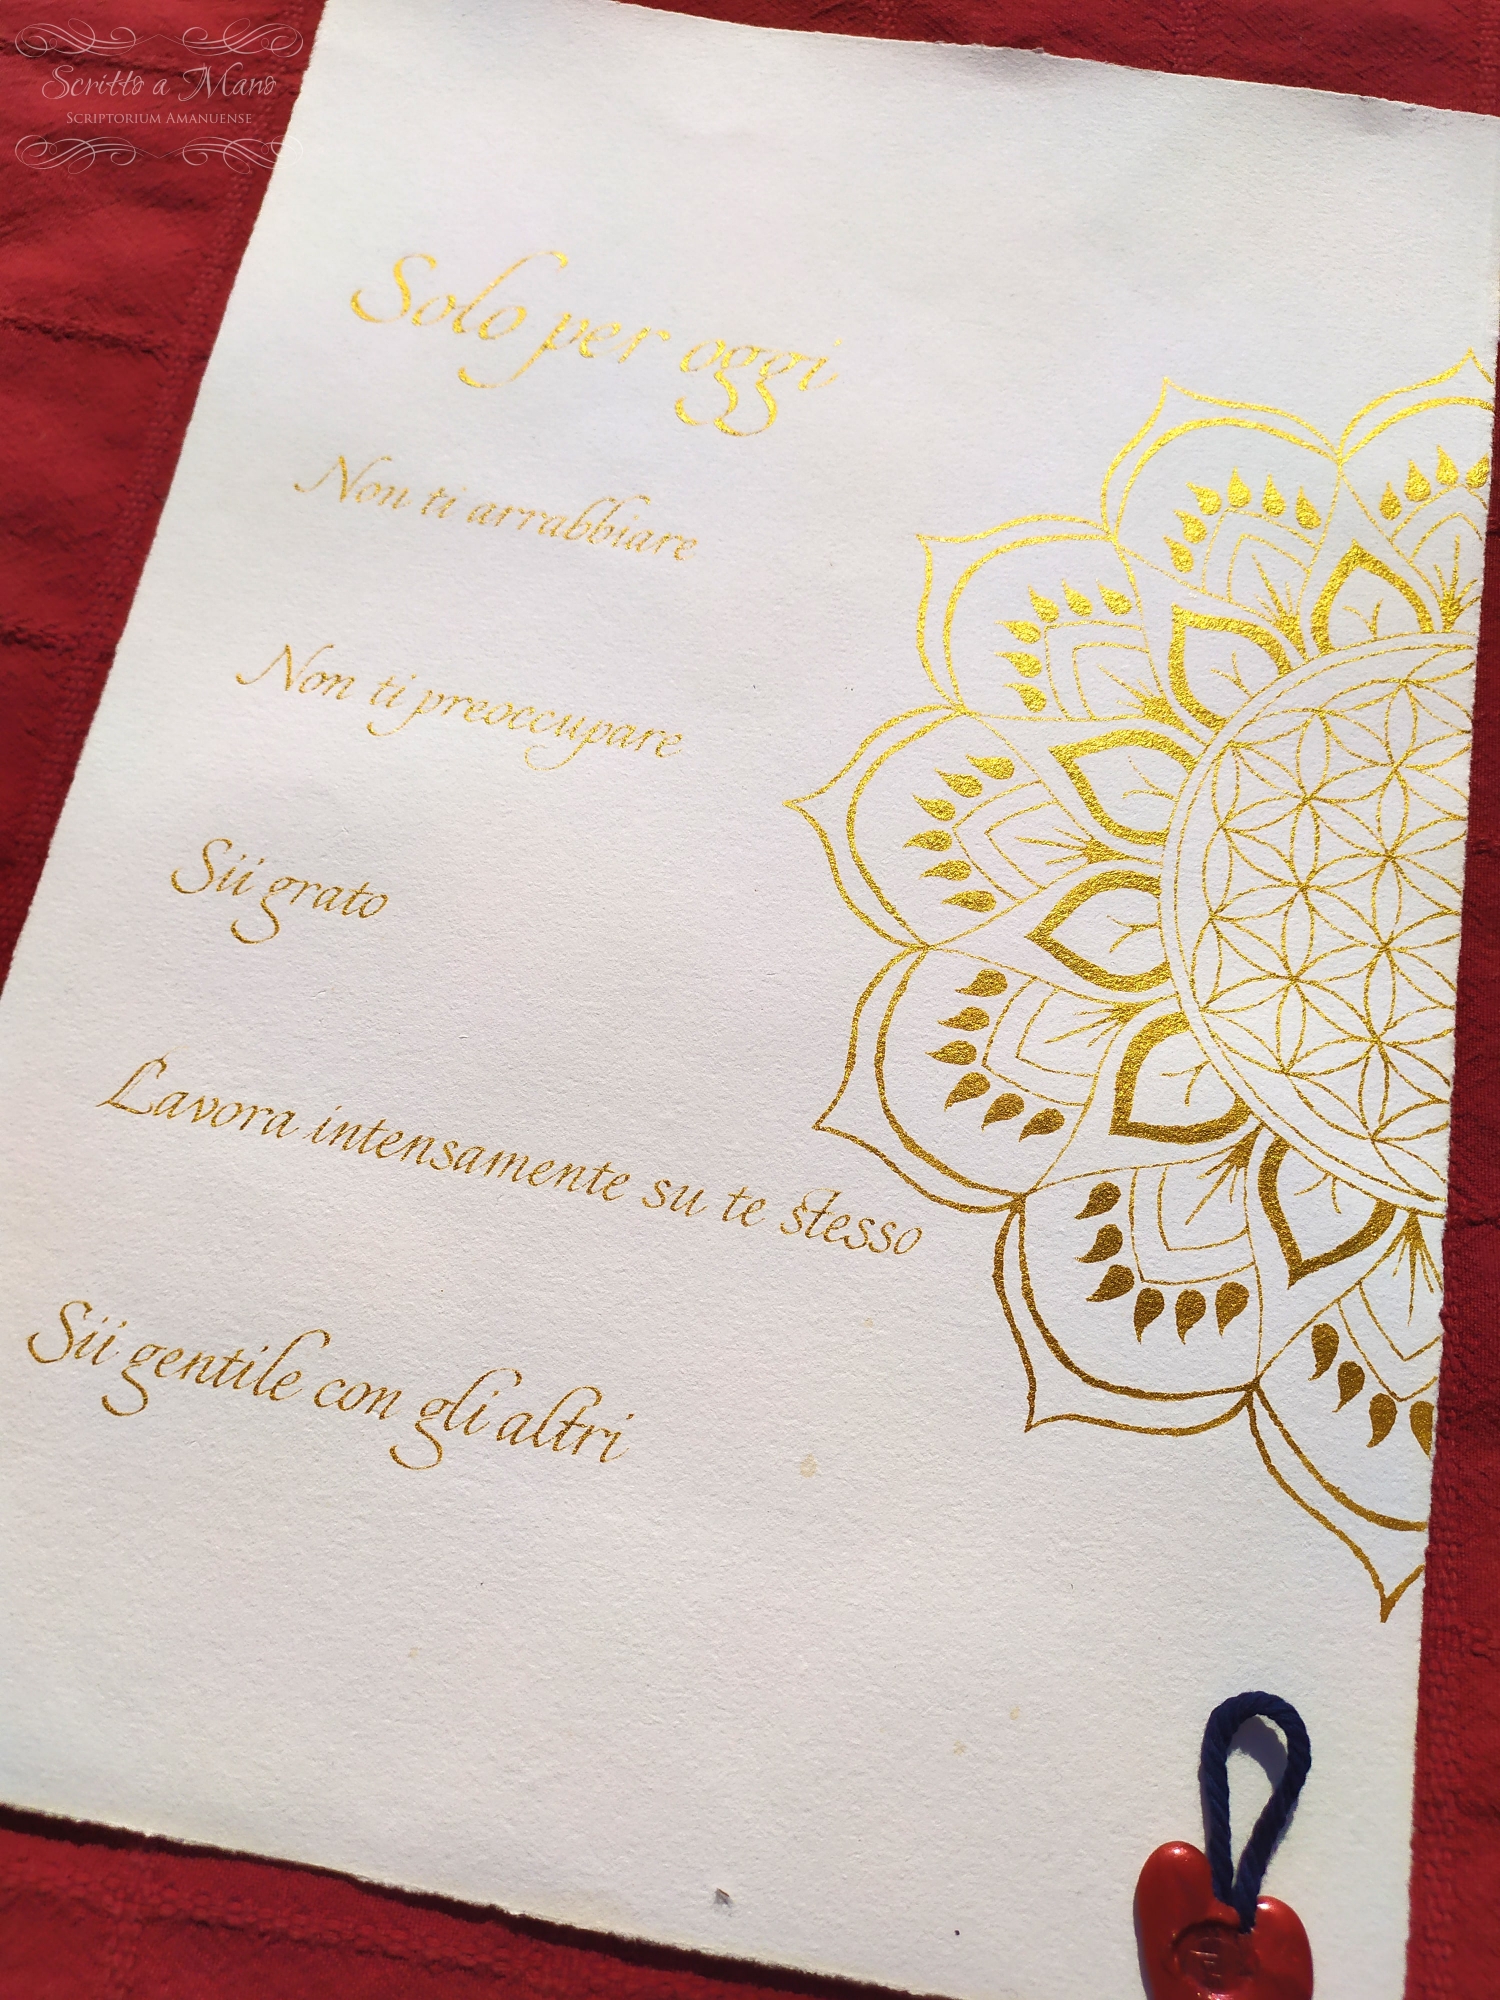 Scritto a Mano
Scriptorium Amanuense
Solo per oggi
Non ti arrabbiare
Non ti preoccupare
Sii grato
Lavora intensamente su te stesso
Sii gentile con gli altri